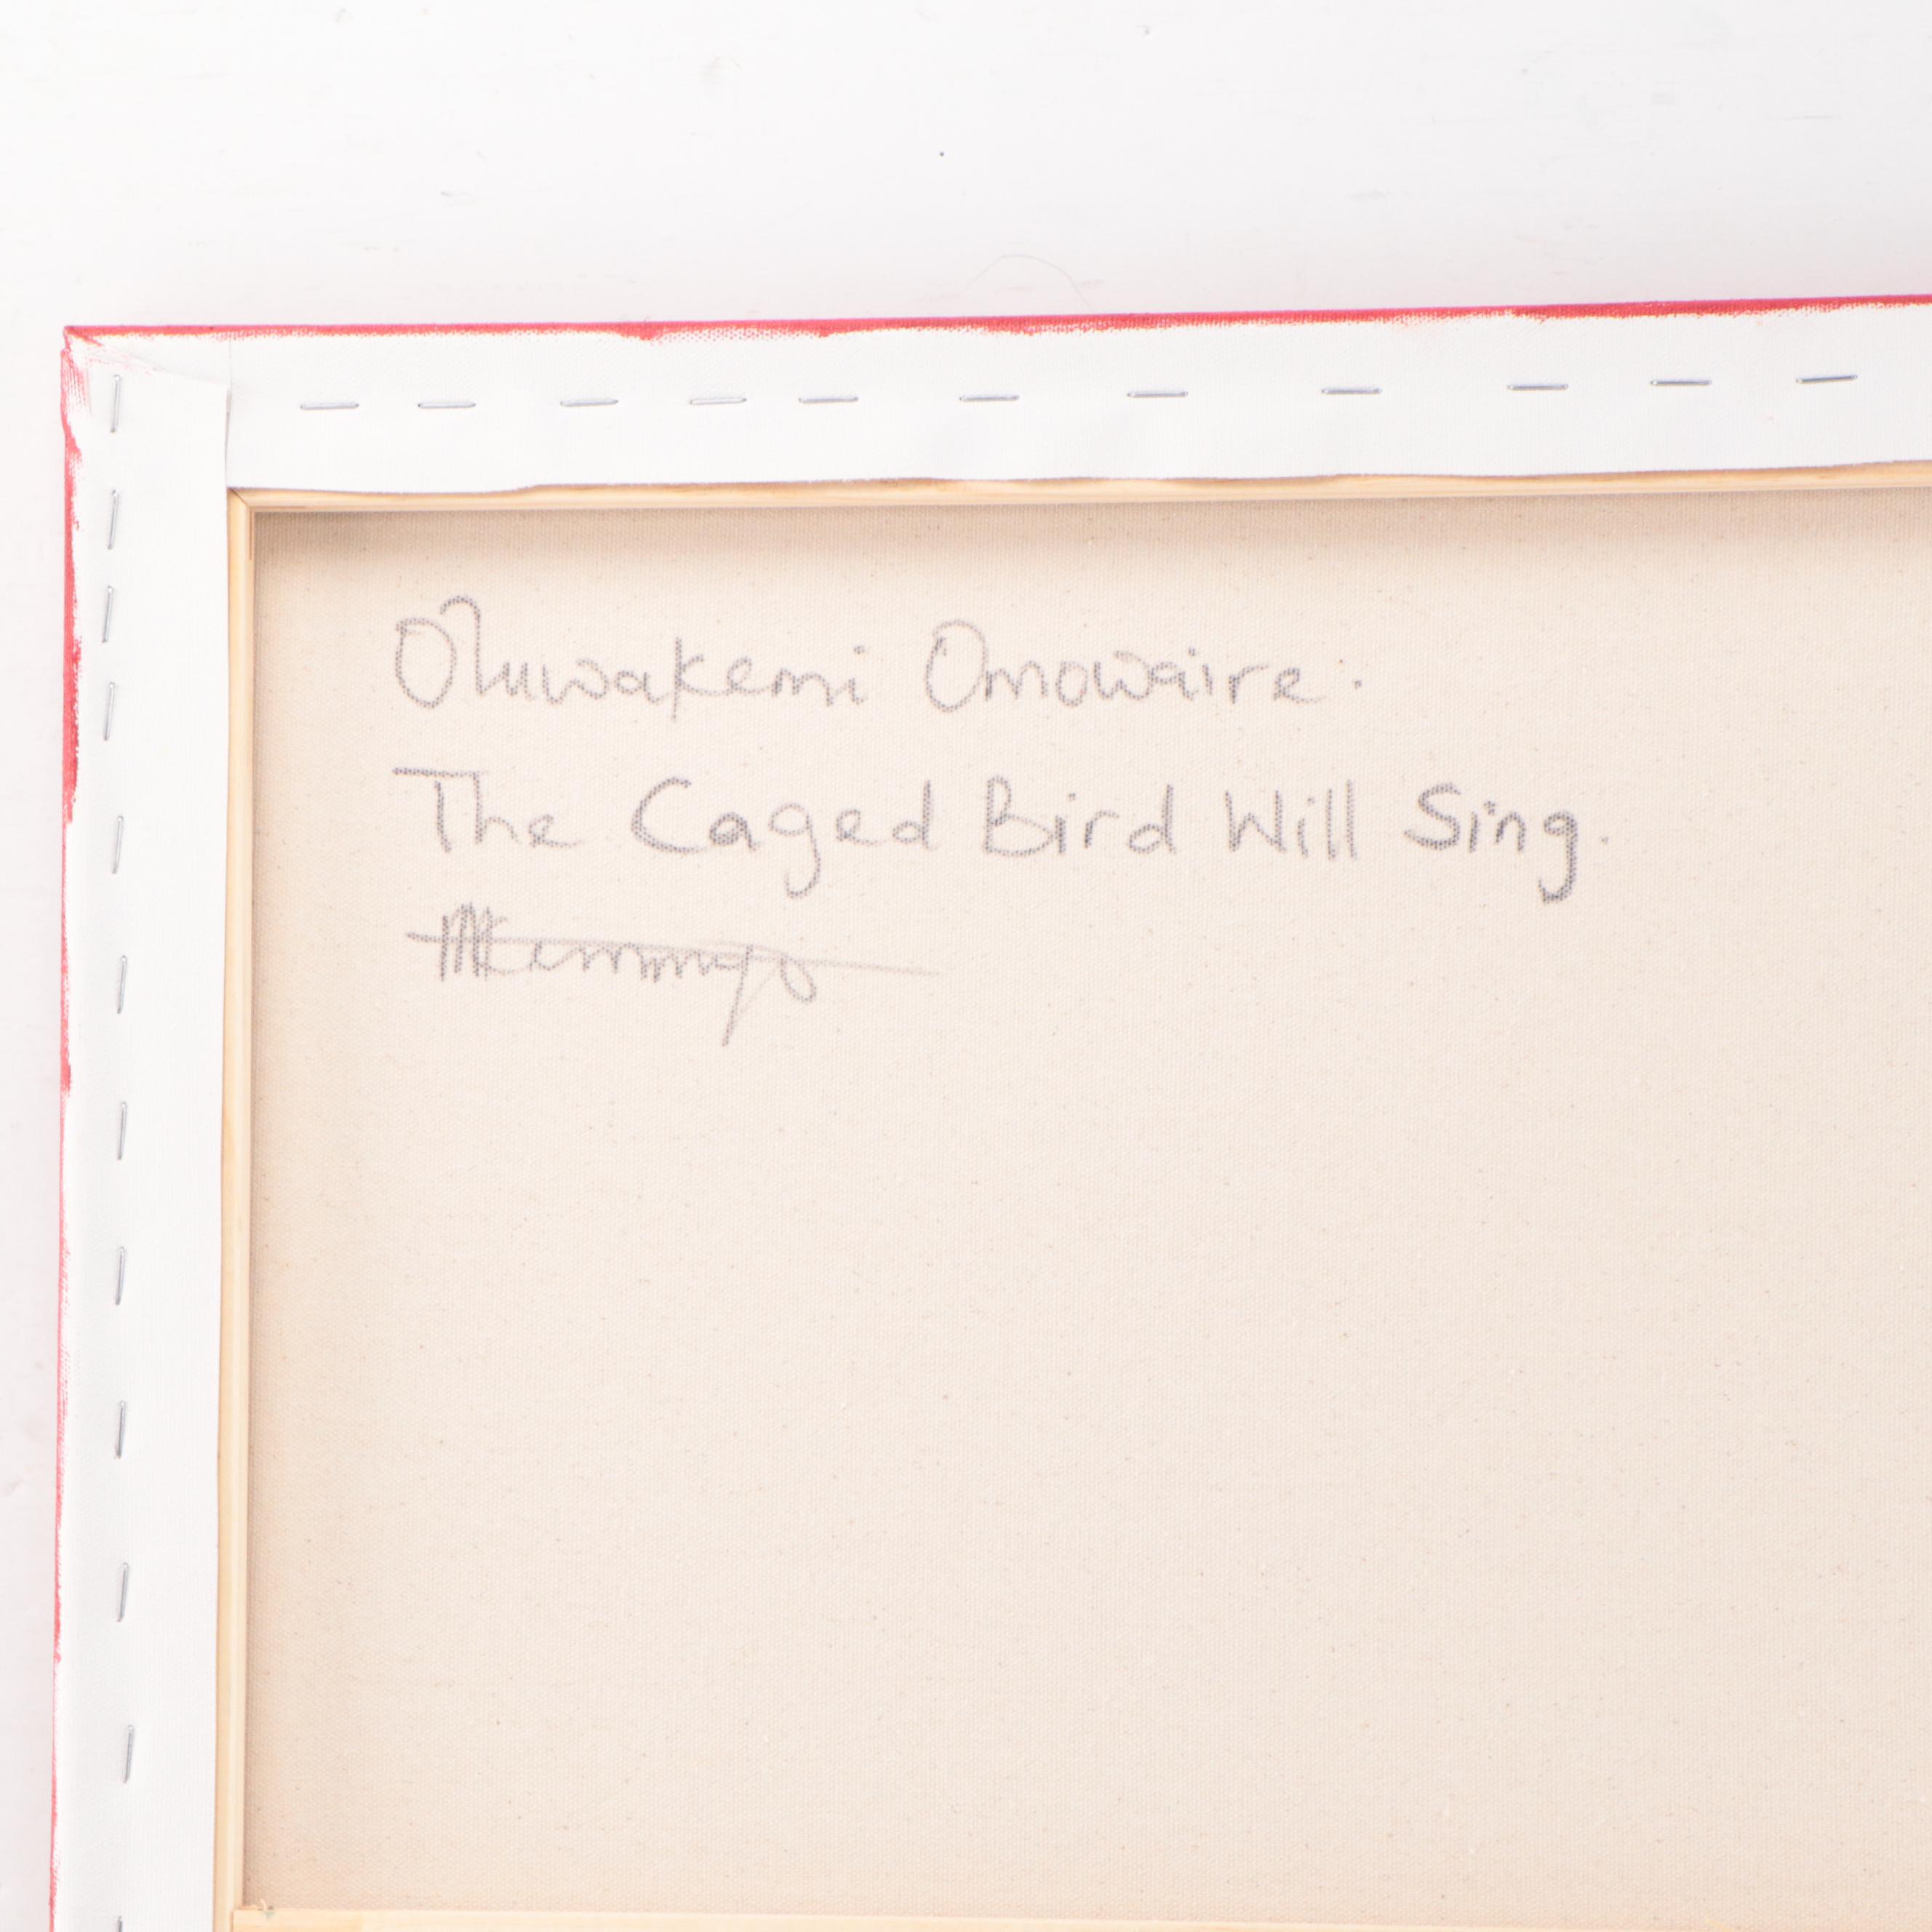 Oluwakemi Omowaire.
The Caged Bird Will Sing.